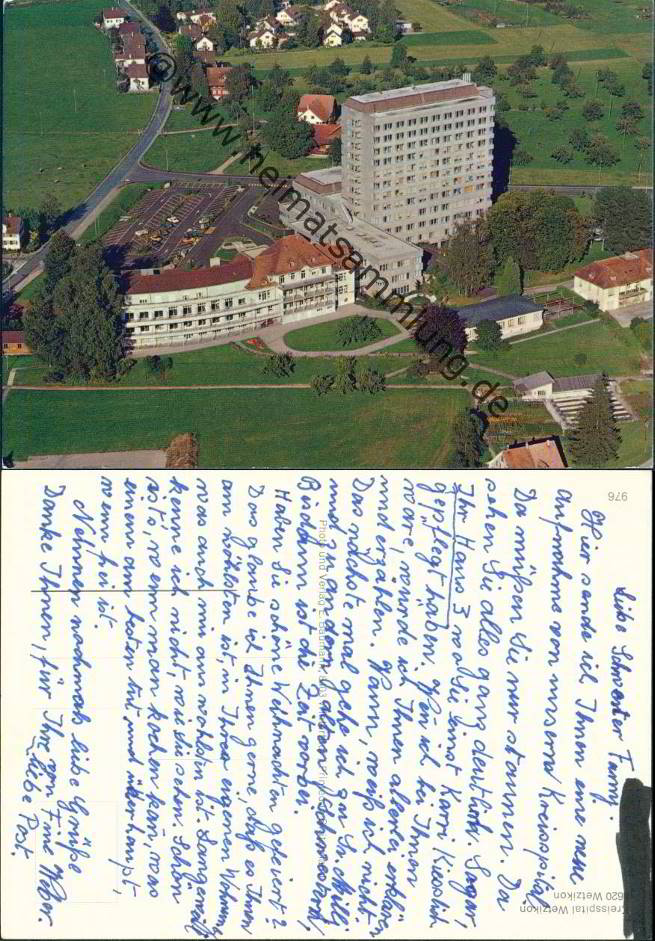 ©www.heimatsammlung.de
976
Liebe Schwester Fanny.
Hier sende ich Ihnen eine neue
aufnahme von unserm Kreisspital.
Da müssen Sie nur staunen. Da
sehen Sie alles ganz deutlich. Sogar,
Ihr Haus 3 wo Sie einst Karri Kiesslich
gepflegt haben. Wen ich bei Ihnen
wäre, würde ich Ihnen alles erklären
und erzählen. Wann, weiss ich nicht.
Das nächste mal gehe ich zur
und zu den alten Schwestern,
Bis dann ist die Zeit vorbei.
Haben Sie schöne Weihnachten gefeiert?
Das glaube ich Ihnen gerne, dass es Ihnen
am wohlsten ist, in Ihrer eigenen Wohnung
was auch mir am wohlsten ist. Langeweile
kenne ich nicht, wie die schon Leben
ists, wenn man kochen kan, was
einem am besten tut und überhaupt,
wenn frei ist.
Nehmen nochmals liebe Grüsse
Danke Ihnen, für Ihre von Eme Weber.
liebe Post.
Photo und Verlag
Kreisspital Wetzikon
8620 Wetzikon